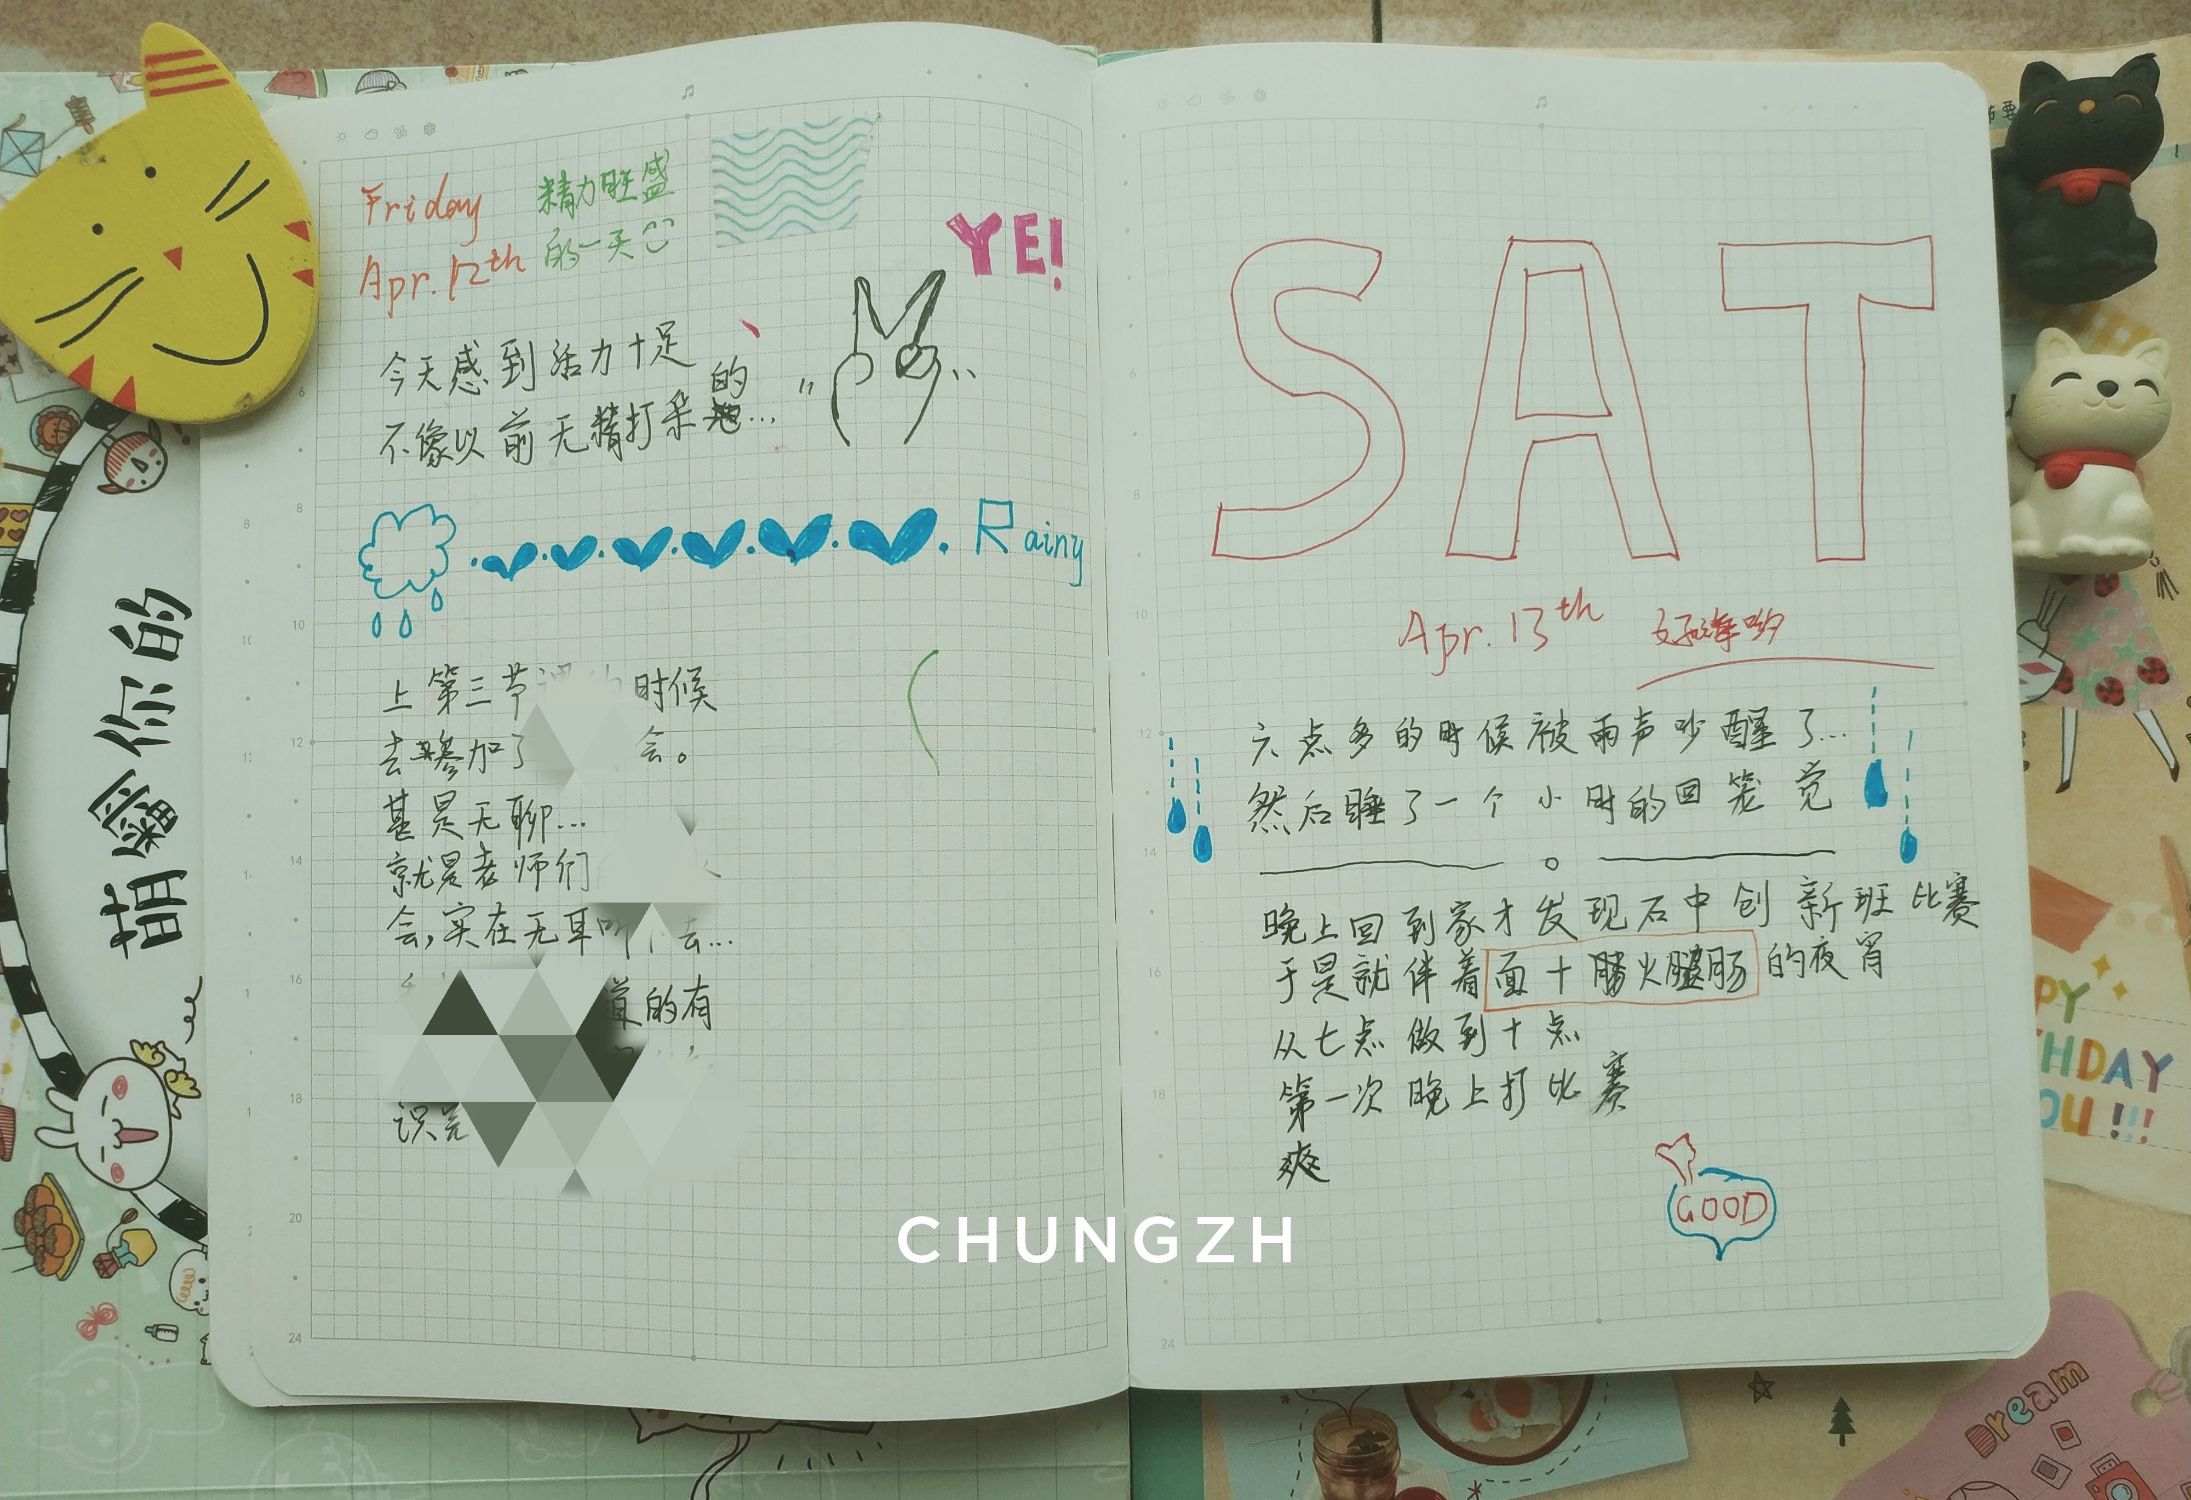 Friday
Apr. 12th
精力旺盛
的一天
YE!
今天感到活力十足
不像以前无精打采的...
Rainy
上第三节 时候
去参加了 会。
甚是无聊...
就是老师们
会,实在无耳听 去...
道的有
萌你的
SAT
Apr. 13th
六点多的时候被雨声吵醒了...
然后睡了一个小时的回笼觉
晚上回到家才发现石中创新班比赛
于是就伴着面十腾火腿肠的夜宵
从七点做到十点
第一次晚上打比赛
爽
GOOD
CHUNGZH
Dream